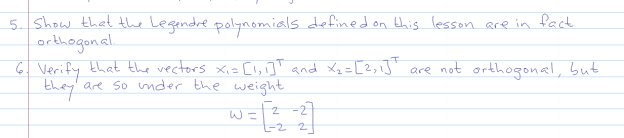 5. Show that the Legendre polynomials defined on this lesson are in fact
orthogonal.
6. Verify that the vectors x₁=[1,1]ᵀ and x₂=[2,1]ᵀ are not orthogonal, but
they are so under the weight
W = [2 -2
-2 2]